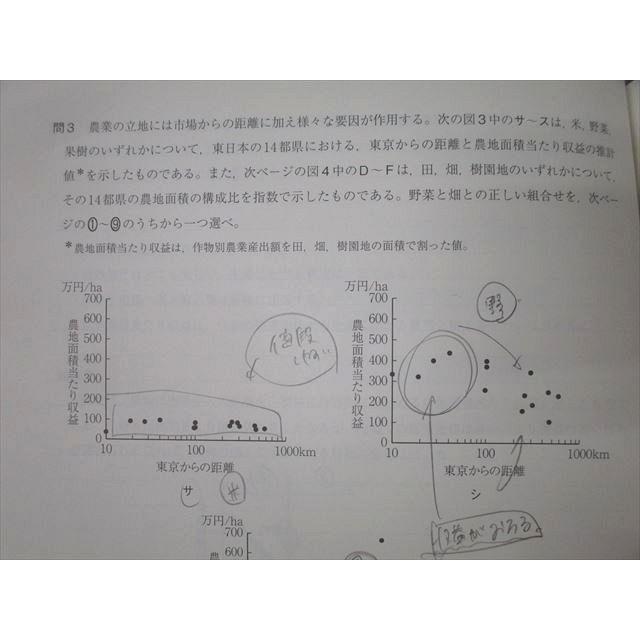 問3 農業の立地には市場からの距離に加え様々な要因が作用する。次の図3中のサ～スは，米，野菜，
果樹のいずれかについて，東日本の14都県における，東京からの距離と農地面積当たり収益の推計
値*を示したものである。また，次ページの図4中のD～Fは，田，畑，樹園地のいずれかについて，
その14都県の農地面積の構成比を指数で示したものである。野菜と畑との正しい組合せを，次ペー
ジの①～⑨のうちから一つ選べ。
*農地面積当たり収益は，作物別農業産出額を田，畑，樹園地の面積で割った値。
万円/ha
700
600
500
400
300
200
100
0
農地面積当たり収益
10
100
1000km
東京からの距離
サ
米
値段
万円/ha
700
600
500
400
300
200
100
0
農地面積当たり収益
10
100
1000km
東京からの距離
シ
野
万円/ha
700
600
農